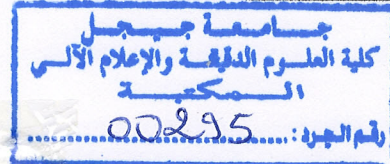 جامعة جيجل
كلية العلوم الدقيقة والإعلام الآلي
المكتبة
رقم الجرد: 00295